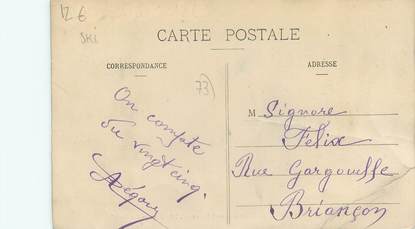 12 6
SKI
CARTE POSTALE
CORRESPONDANCE
ADRESSE
73)
On compte
du vingt cinq.
M Signore
Félix
Rue Gargouille
Briançon